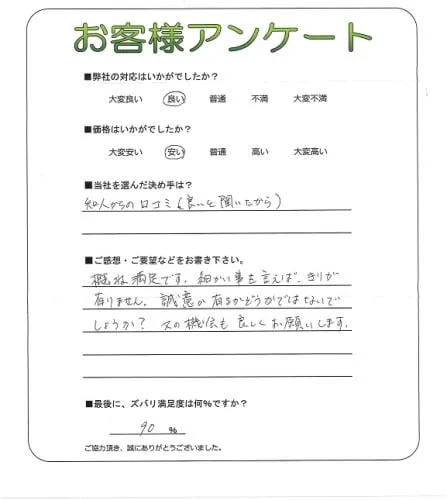 お客様アンケート
■弊社の対応はいかがでしたか?
大変良い 良い 普通 不満 大変不満
■価格はいかがでしたか?
大変安い 安い 普通 高い 大変高い
■当社を選んだ決め手は?
知人からの口コミ(良いと聞いたから)
■ご感想・ご要望などをお書き下さい。
概ね満足です。細かい事を言えば、きりが
有りません。誠意が有るかどうかではないで
しょうか? 又の機会も良しくお願いします。
■最後に、ズバリ満足度は何%ですか?
90 %
ご協力頂き、誠にありがとうございました。